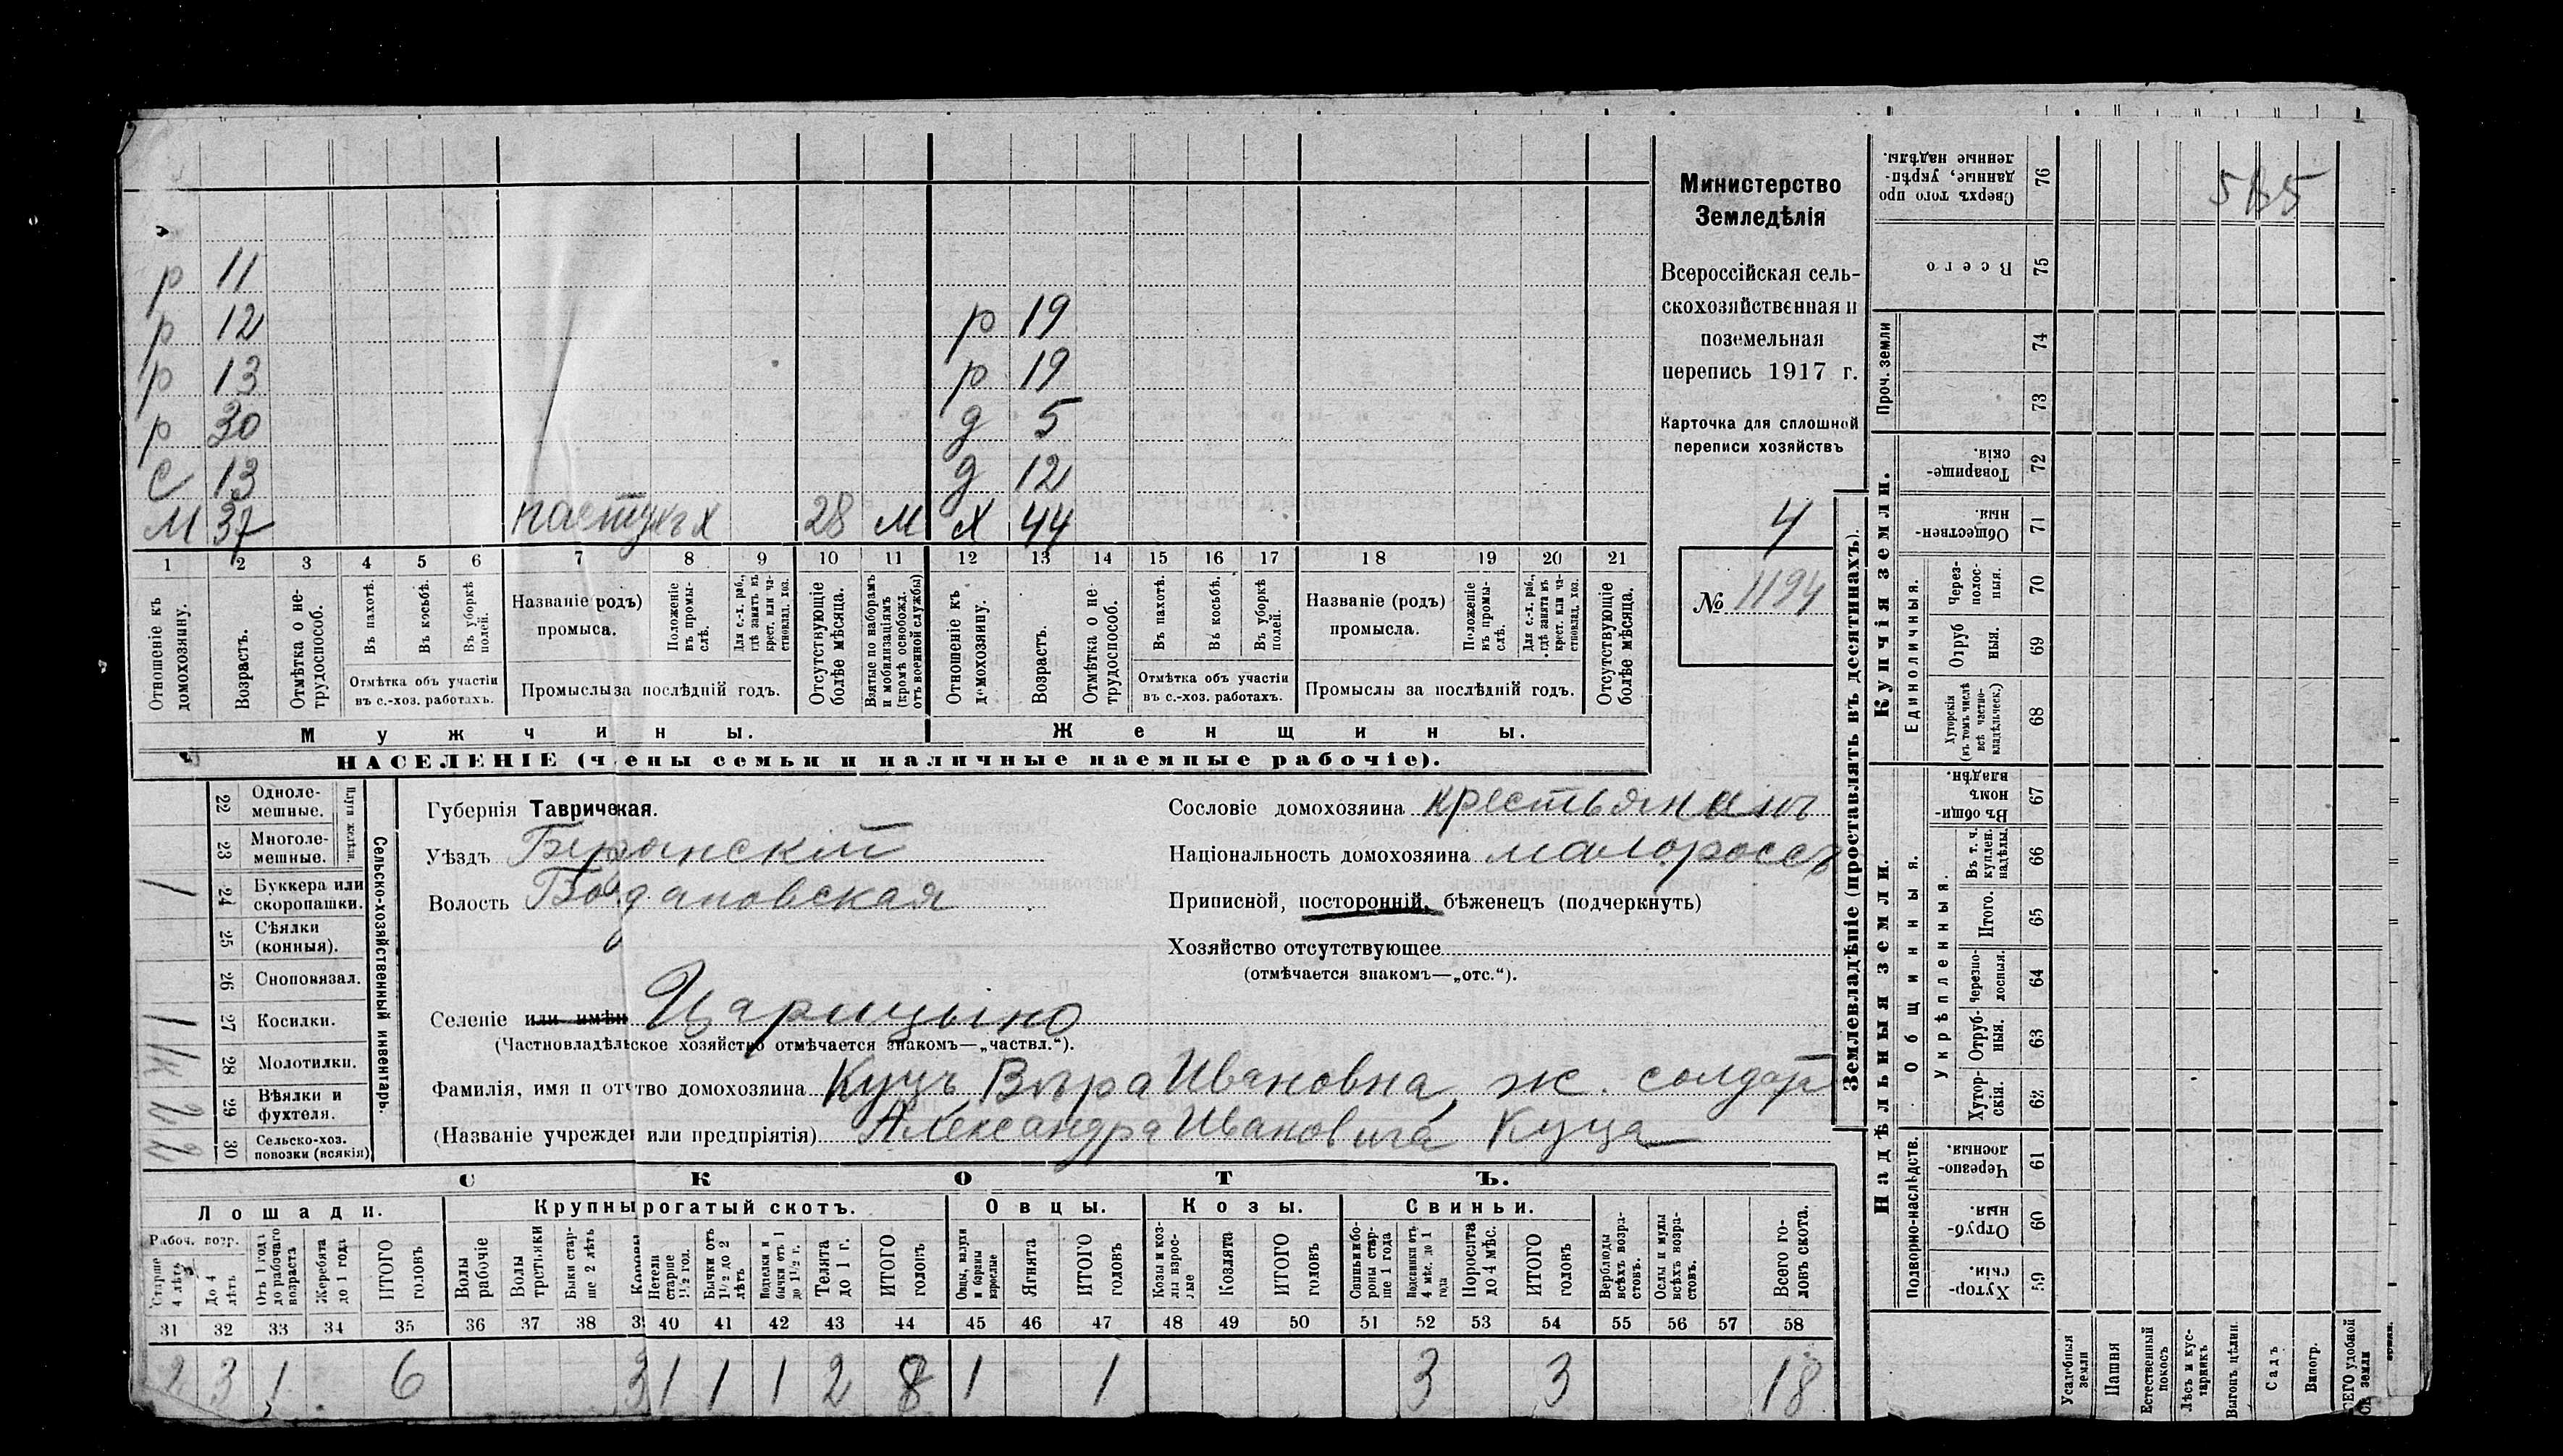 р 11
р 12 р 19
р 13 р 19
р 30 д 5
с 13 д 12
м 37 пастухъ х 28 м х 44
1 2 3 4 5 6 7 8 9 10 11 12 13 14 15 16 17 18 19 20 21
Отношеніе къ домохозяину.
Возрастъ.
Отмѣтка о не-
трудоспособ.
Въ пахотѣ.
Въ косьбѣ.
Въ уборкѣ
полей.
Отмѣтка объ участіи
въ с.-хоз. работахъ.
Названіе (родъ)
промыса.
Положеніе
въ промы-
слѣ.
Для с.-х. раб.,
гдѣ занятъ въ
крест. или ча-
стновлад. хоз.
Промыслы за послѣдній годъ.
Отсутствующіе
болѣе мѣсяца.
Взятые по наборамъ
и мобилизаціямъ
(кромѣ освобожд.
отъ военной службы)
Отношеніе къ
домохозяину.
Возрастъ.
Отмѣтка о не-
трудоспособ.
Въ пахотѣ.
Въ косьбѣ.
Въ уборкѣ
полей.
Отмѣтка объ участіи
въ с.-хоз. работахъ.
Названіе (родъ)
промысла.
Положеніе
въ промы-
слѣ.
Для с.-х. раб.,
гдѣ занята въ
крест. или ча-
стновлад. хоз.
Промыслы за послѣдній годъ.
Отсутствующіе
болѣе мѣсяца.
Мужчины. Женщины.
НАСЕЛЕНІЕ (члены семьи и наличные наемные рабочіе).
Министерство
Земледѣлія
Всероссійская сель-
скохозяйственная и
поземельная
перепись 1917 г.
Карточка для сплошной
переписи хозяйствъ
4
№ 1194
Сельско-хозяйственный инвентарь.
Плуги желѣзн.
22 Одноле-
мешные.
23 Многоле-
мешные.
1 24 Буккера или
скоропашки.
25 Сѣялки
(конныя).
26 Сноповязал.
1 27 Косилки.
28 Молотилки.
29 Вѣялки и
фухтеля.
30 Сельско-хоз.
повозки (всякія)
Губернія Таврическая.
Уѣздъ Бердянскій
Волость Богдановская
Селеніе или имѣн Царицыно
(Частновладѣльское хозяйство отмѣчается знакомъ—„частвл.“).
Фамилія, имя и отчтво домохозяина Куцъ Вѣра Ивановна, ж. солдат
(Названіе учрежден или предпріятія) Александра Ивановича Куца
Сословіе домохозяина крестьянинъ
Національность домохозяина малороссъ
Приписной, посторонній, бѣженецъ (подчеркнуть)
Хозяйство отсутствующее
(отмѣчается знакомъ—„отс.“).
СКОТЪ.
Лошади. Крупны рогатый скотъ. Овцы. Козы. Свиньи.
Рабоч. возр.
Старше
4 лѣтъ
До 4
лѣтъ
Отъ 1 года
до рабочаго
возраста
Жеребята
до 1 года
ИТОГО
головъ
Волы
рабочіе
Волы
третьяки
Быки стар-
ше 2 лѣтъ
Коровы
Нетели
старше
1½ год.
Бычки отъ
1½ до 2
лѣтъ
Подтелки и
бычки отъ 1
до 1½ г.
Телята
до 1 г.
ИТОГО
головъ
Овцы, валухи
и бараны
взрослые
Ягнята
ИТОГО
головъ
Козы и коз-
лы взрос-
лые
Козлята
ИТОГО
головъ
Свиньи и бо-
роны стар-
ше 1 года
Подсвинки отъ
4 мѣс. до 1
года
Поросята
до 4 мѣс.
ИТОГО
головъ
Верблюды
всѣхъ возра-
стовъ.
Ослы и мулы
всѣхъ возра-
стовъ.
Всего го-
ловъ скота.
31 32 33 34 35 36 37 38 3 40 41 42 43 44 45 46 47 48 49 50 51 52 53 54 55 56 57 58
2 3 1 6 3 1 1 1 2 8 1 1 3 3 18
Землевладѣніе (проставлять въ десятинахъ).
Купчія земли.
Надѣльныя земли.
Проч. земли
Единоличныя.
Общинныя.
Укрѣпленныя.
Подворно-наслѣдств.
Сверхъ того про
данные, укрѣп-
ленные надѣлы.
76
5 5
Всего 75
74
73
Товарище-
скія. 72
Обществен-
ныя. 71
Через-
полос-
ныя. 70
Отруб
ныя. 69
Хуторскія
(въ томъ числѣ
всѣ частно-
владѣльческ.) 68
Въ общи
номъ
владѣн. 67
Въ т. ч.
куплен.
надѣлы. 66
Итого. 65
Черезпо-
лосныя. 64
Отруб-
ныя. 63
Хутор-
скія. 62
Черезпо-
лосныя. 61
Отруб-
ныя. 60
Хутор-
скія. 59
Усадебныя
земли
Пашня
Естественный
покосъ
Лѣсъ и кус-
тарникъ
Выгонъ цѣлин.
Садъ
Виногр.
СЕГО удобной
земли